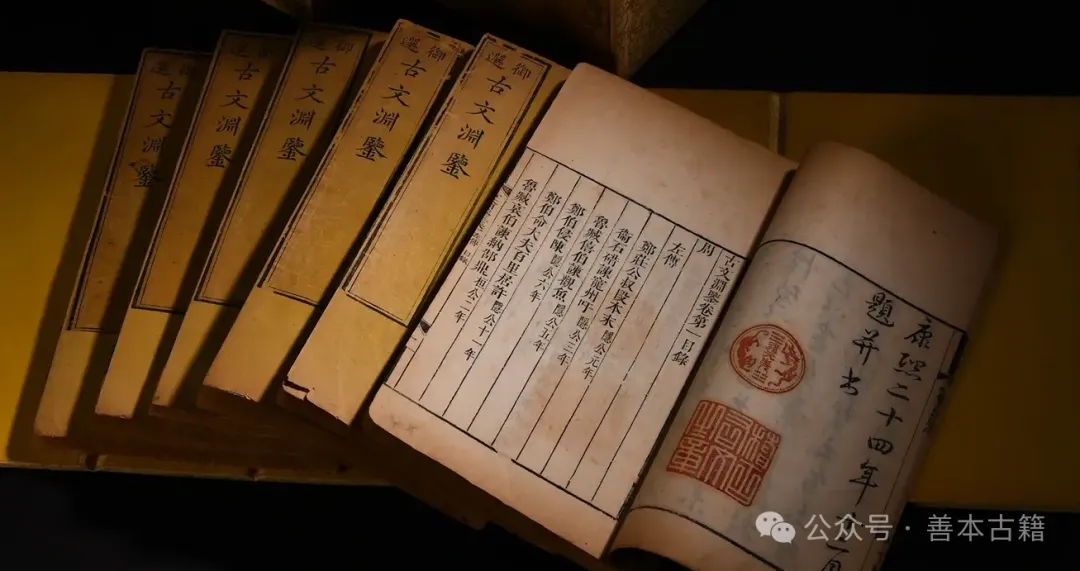 御選
古文淵鑒
御選
古文淵鑒
御選
古文淵鑒
御選
古文淵鑒
御選
古文淵鑒
康熙二十四年
題并書
稽古右文之章
古文淵鑒卷第一目錄
周
左傳
鄭莊公叔段本末 隱公元年
衛石碏諫寵州吁 隱公三年
魯臧僖伯諫觀魚 隱公五年
鄭伯侵陳 隱公六年
鄭伯命大夫百里居許 隱公十一年
魯臧哀伯諫納郜鼎 桓公二年
公众号 · 善本古籍